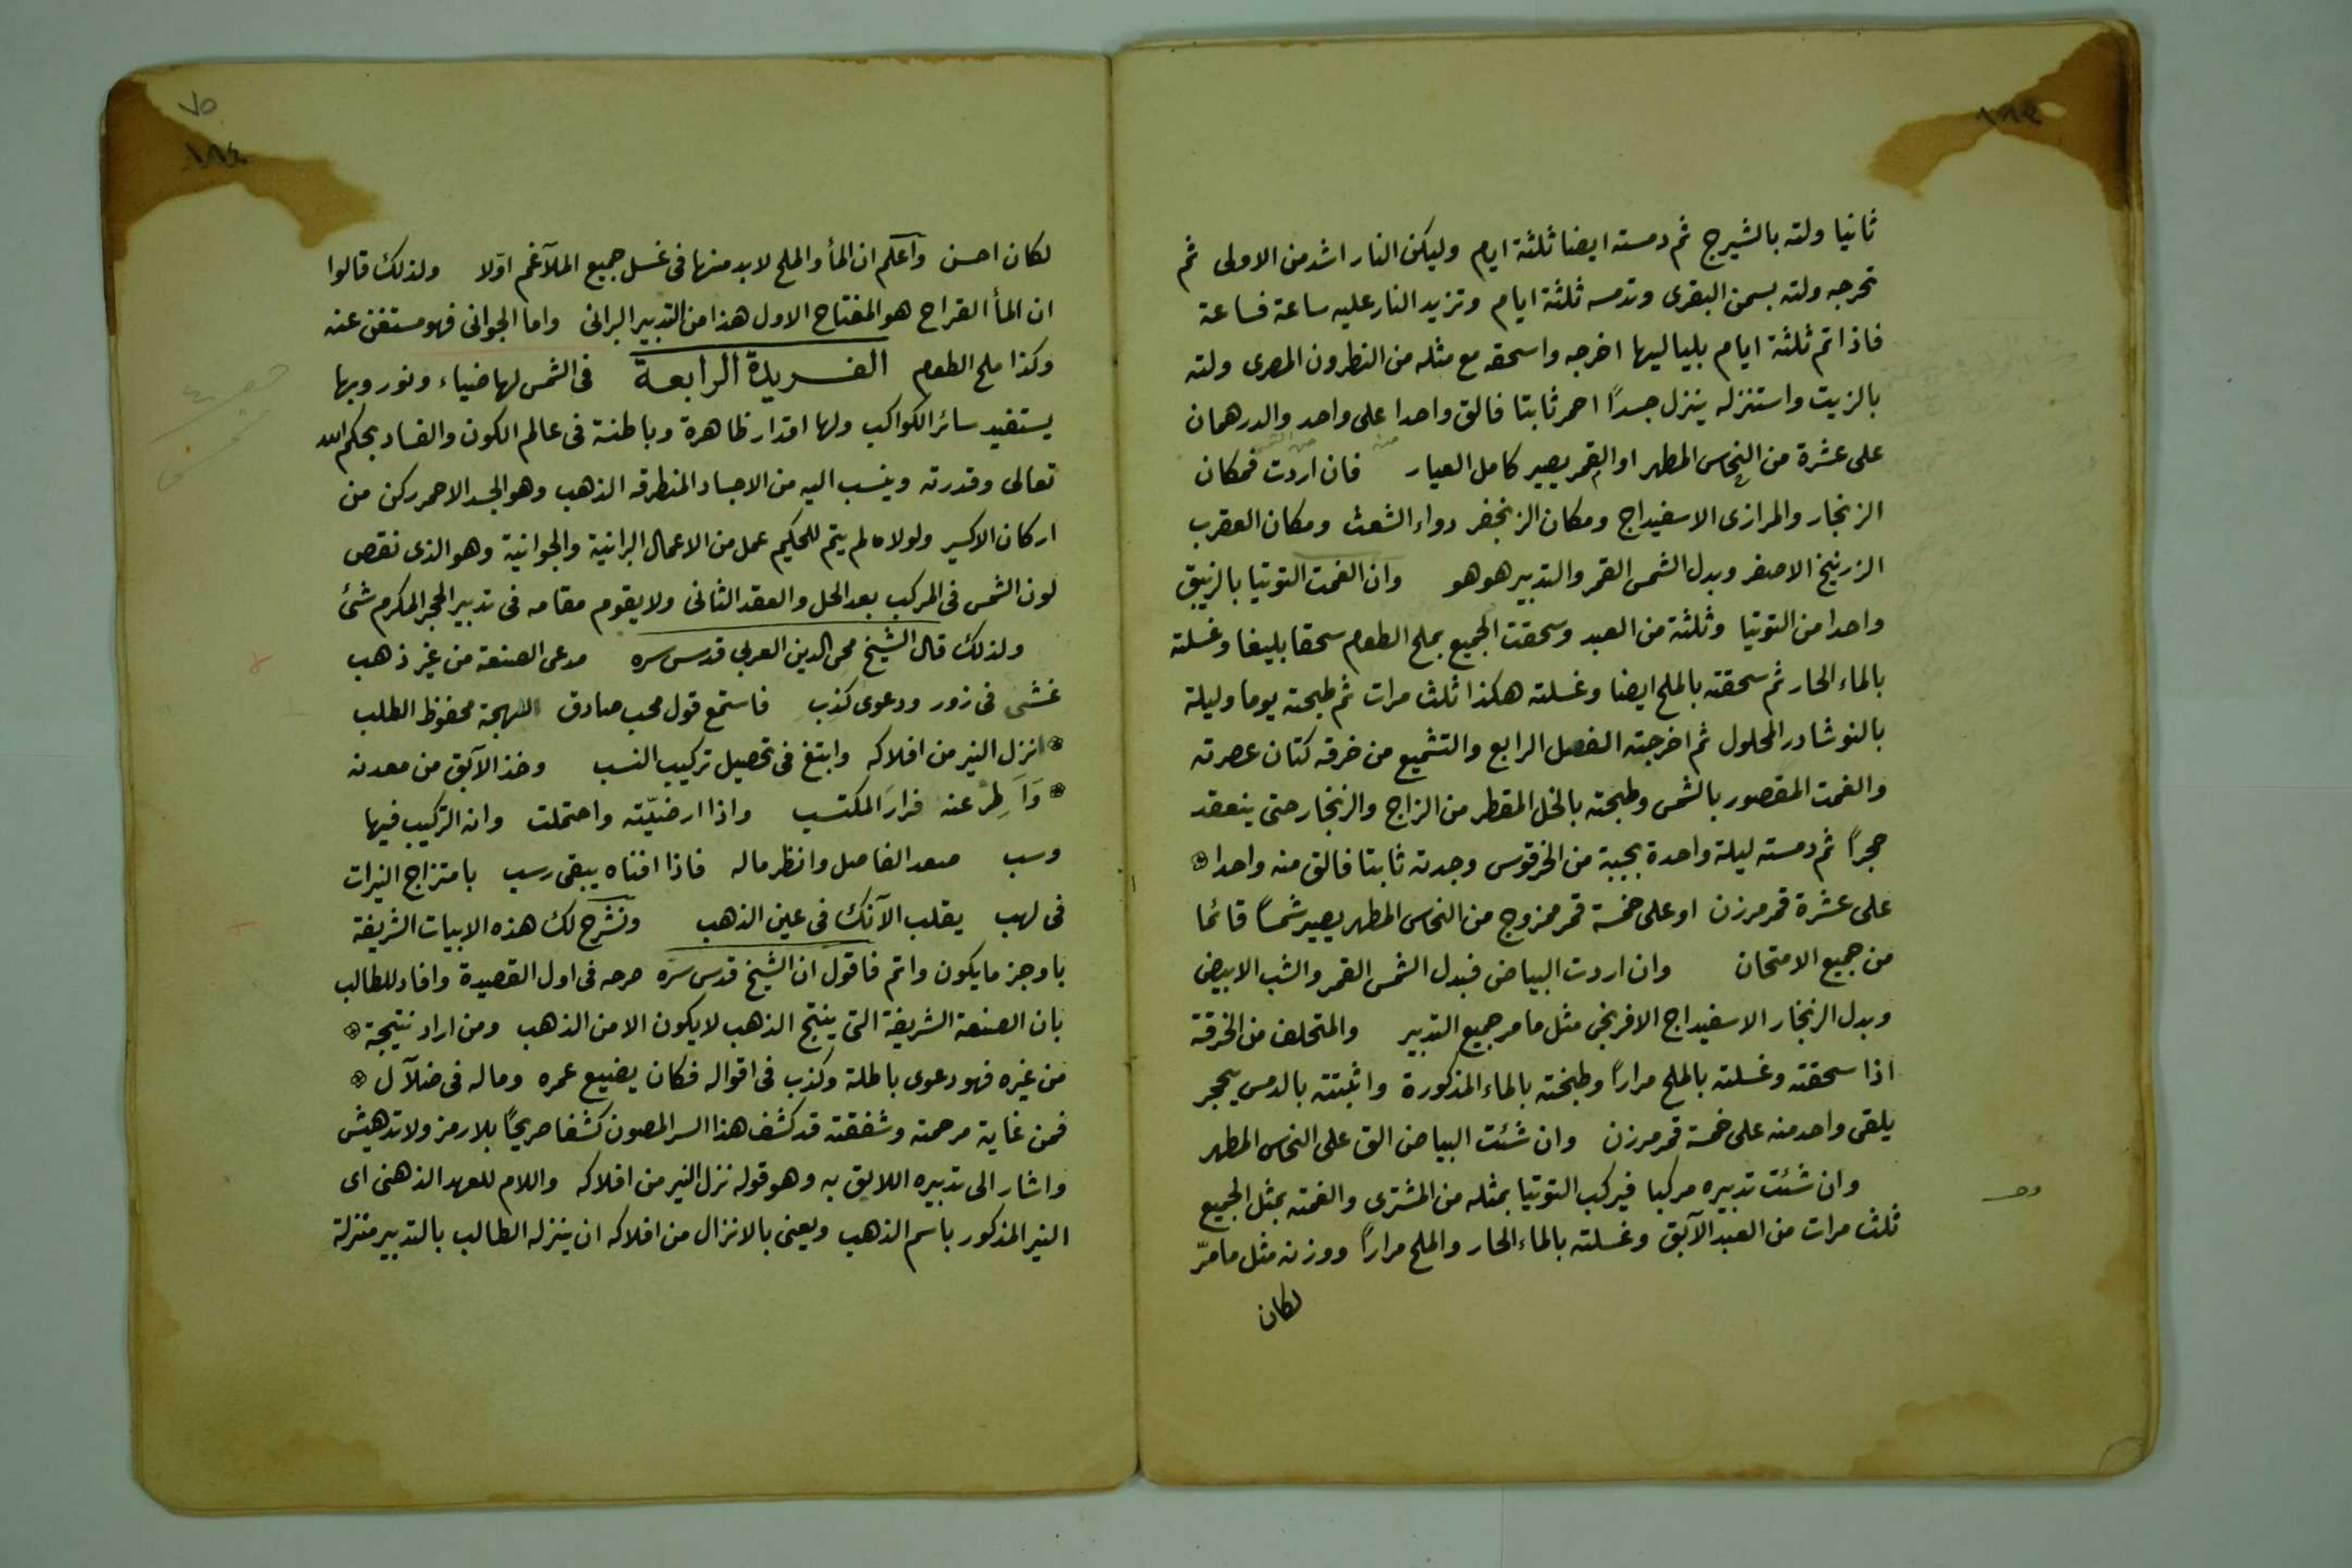 ١٨٣
ثانيا ولته بالشيرج ثم دمسته ايضا ثلثة ايام وليكن النار اشد من الاولى ثم
تخرجه ولته بسمن البقرى وتدمسه ثلثة ايام وتزيد النار عليه ساعة فساعة
فاذا تم ثلثة ايام بلياليها اخرجه واسحقه مع مثله من النطرون المصرى ولته
بالزيت واستنزله ينزل جسدًا احمر ثابتا فالق واحدا على واحد والدرهمان
على عشرة من النحاس المطهر او القمر يصير كامل العيار فان اردت فمكان
الزنجار والمرازى الاسفيداج ومكان الزنجفر دواء الشعث ومكان العقرب
الزرنيخ الاصفر وبدل الشمس القمر والتدبير هو هو وان الغمت التوتيا بالزيبق
واحدا من التوتيا وثلثة من العبد وسحقت الجميع بملح الطعام سحقا بليغا وغسلته
بالماء الحار ثم سحقته بالملح ايضا وغسلته هكذا ثلث مرات ثم طبخته يوما وليلة
بالنوشادر المحلول ثم اخرجته الفصل الرابع والتشميع من خرقه كتان عصرته
والغمت المقصور بالشمس وطبخته بالخل المقطر من الزاج والزنجار حتى ينعقد
حجرًا ثم دمسته ليلة واحدة بجببة من الخرقوس وجدته ثابتا فالق منه واحدا
على عشرة قمر مرزن او على خمسة قمر ممزوج من النحاس المطهر يصير شمسًا قائما
من جميع الامتحان وان اردت البياض فبدل الشمس القمر والشب الابيض
وبدل الزنجار الاسفيداج الافرنجى مثل ما مر جميع التدبير والمتخلف من الخرقة
اذا سحقته وغسلته بالملح مرارًا وطبخته بالماء المذكورة واثبتته بالدمس يحجر
يلقى واحد منه على خمسة قمر مرزن وان شئت البياض الق على النحاس المطهر
وان شئت تدبيره مركبا فيركب التوتيا بمثله من المشترى والغمته بمثل الجميع
ثلث مرات من العبد الآبق وغسلته بالماء الحار والملح مرارًا ووزنه مثل ما مرّ
لكان
٧٥
١٨٤
لكان احسن وآعلم ان المأ والملح لابد منها فى غسل جميع الملآغم اوّلا ولذلك قالوا
ان المأ القراح هو المفتاح الاول هذا من التدبير البرانى واما الجوانى فهو مستغن عنه
وكذا ملح الطعام الفريدة الرابعة فى الشمس لها ضياء ونور وبها
يستفيد سائر الكواكب ولها اقدار ظاهرة وباطنة فى عالم الكون والفساد بحكم الله
تعالى وقدرته وينسب اليه من الاجساد المنطرقه الذهب وهو الجسد الاحمر ركن من
اركان الاكسير ولولاه لم يتم للحكيم عمل من الاعمال البرانية والجوانية وهو الذى نقص
لون الشمس فى المركب بعد الحل والعقد الثانى ولا يقوم مقامه فى تدبير الحجر المكرم شئ
ولذلك قال الشيخ محى الدين العربي قدس سره مدعى الصنعة من غير ذهب
غشى فى زور ودعوى كذب فاستمع قول محب صادق اللهجة محفوظ الطلب
انزل النير من افلاكه وابتغ فى تحصيل تركيب النسب وخذ الآبق من معدنه
وَآطِرْ عنه فرارَ المكتسب واذا ارضيّته واحتملت وانه التركيب فيها
وسب صعد الفاصل وانظر ماله فاذا افناه يبقى رسب بامتزاج النيرات
فى لهب يقلب الآنك فى عين الذهب ونشرح لك هذه الابيات الشريفة
باوجز ما يكون واتم فاقول ان الشيخ قدس سره صرحه فى اول القصيدة وافاد للطالب
بان الصنعة الشريفة التى ينتج الذهب لا يكون الا من الذهب ومن اراد نتيجة
من غيره فهو دعوى باطلة وكذب فى اقواله فكان يضيع عمره وماله فى ضلآل
فمن غاية مرحمته وشفقته قد كشف هذا السر المصون كشفا صريحًا بلا رمز ولا تدهيش
واشار الى تدبيره اللايق به وهو قوله نزل النير من افلاكه واللام للعهد الذهنى اى
النير المذكور باسم الذهب ويعنى بالانزال من افلاكه ان ينزله الطالب بالتدبير منزلة